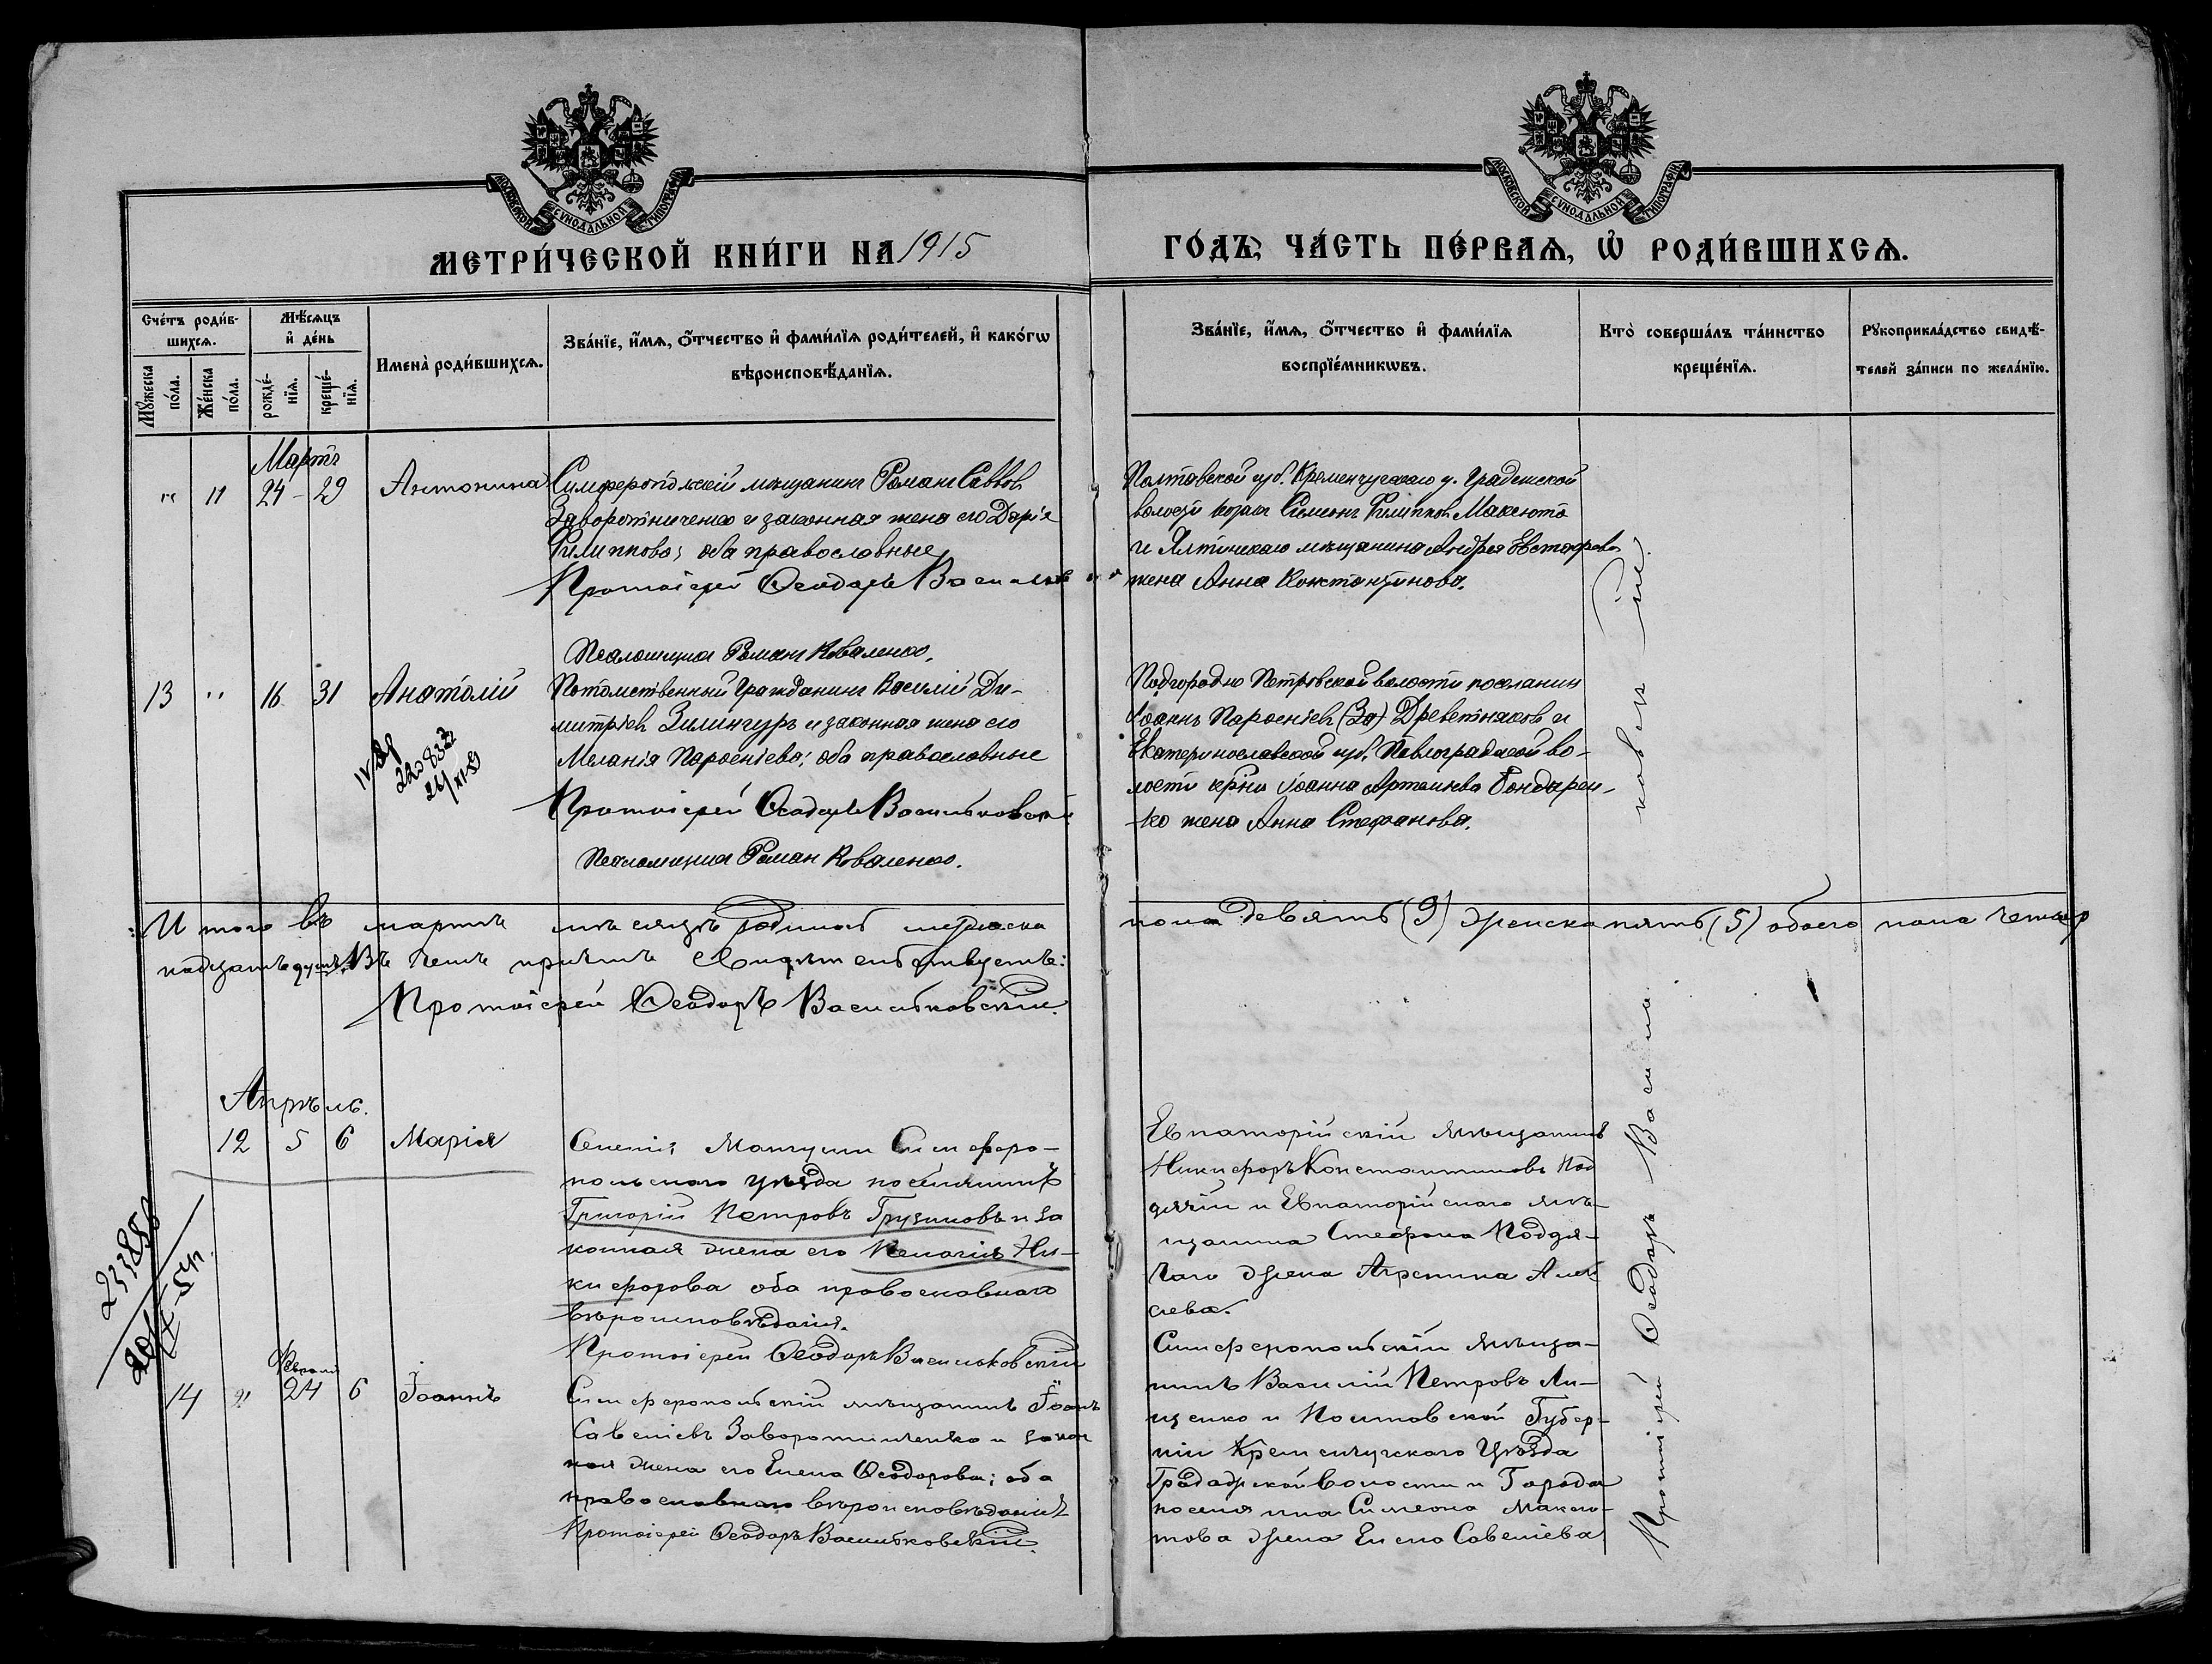 МОСКОВСКОЙ СУНОДАЛЬНОЙ ТИПОГРАФІИ
МОСКОВСКОЙ СУНОДАЛЬНОЙ ТИПОГРАФІИ
МЕТРИ́ЧЕСКОЙ КНИ́ГИ НА 1915
ГО́ДЪ, ЧА́СТЬ ПЕ́РВАѦ, Ѡ РОДИ́ВШИХСѦ.
Сче́тъ роди́в-
шихсѧ.
Мѣ́сѧцъ
и҆ де́нь
Мꙋ́жеска
по́ла.
Же́нска
по́ла.
рожде́-
нїѧ.
креще́-
нїѧ.
Имена̀ роди́вшихсѧ.
Зва́нїе, и҆́мѧ, ѻ҆́тчество и҆ фами́лїѧ роди́телей, и҆ како́гѡ
вѣроисповѣ́данїѧ.
Зва́нїе, и҆́мѧ, ѻ҆́тчество и҆ фами́лїѧ
воспрїе́мникѡвъ.
Кто̀ соверша́лъ та́инство
креще́нїѧ.
Рꙋкоприкла́дство свидѣ́-
телей за́писи по жела́нїю.
Мартъ
" 11 24 - 29 Антонина
Симферопольскій мѣщанинъ Романъ Саввов
Заворотниченко и законная жена его Дарія
Филиппова; оба православные
Протоіерей Ѳеодоръ Васильков
Псаломщикъ Романъ Коваленко.
Полтавской губ. Кременчугскаго у. Градижской
волости козакъ Симеонъ Филиппов Максюта
и Ялтинскаго мѣщанина Андрея
жена Анна Константинова.
13 " 16 31 Анатолій
Потомственный Гражданинъ Василій Ди-
митріев Зилингуръ и законная жена его
Меланія Парѳеніева; оба православные
Протоіерей Ѳеодоръ Васильковскій
Псаломщикъ Роман Коваленко.
Подгородно Петровской волости поселанин
Іоаннъ Парѳеніев (За) Древетняков и
Екатеринославской губ. Павлоградской во-
лости кр-на Іоанна Артемьева Бондарен-
ко жена Анна Стефанова.
Итого въ мартѣ мѣсяцѣ родилось мужеска пола девять (9) женска пять (5) обоего пола четыр
надцать душъ. Въ чемъ причтъ свидѣтельствуетъ:
Протоіерей Ѳеодоръ Васильковскій
Апрѣль.
12 5 6 Марія
Селенія Мангуши Симферо-
польскаго уѣзда поселянинъ
Григорій Петровъ Грузиновъ и за
конная жена его Пелагія Ни-
кифорова оба православнаго
вѣроисповѣданія.
Протоіерей Ѳеодоръ Васильковскій
Евпаторійскій мѣщанинъ
Никифоръ Константиновъ Под
дячій и Евпаторійскаго мѣ-
щанина Стефана Поддя-
чаго жена Агрепина Алек
сеева.
23385
Февраль
14 " 24 6 Іоаннъ
Симферопольскій мѣщанинъ Іоанъ
Савеліевъ Заворотниченко и закон
ная жена его Елена Ѳеодорова; оба
православнаго вѣроисповѣданія
Протоіерей Ѳеодоръ Васильковскій
Симферопольскій мѣща-
нинъ Василій Петровъ Ли-
щенко и Полтавской Губер-
ніи Кременчугскаго Уѣзда
Градажской волости и Города
поселянина Симеона Максю-
това жена Елена Савеліева
Протоіерей Ѳеодоръ Васильковскій